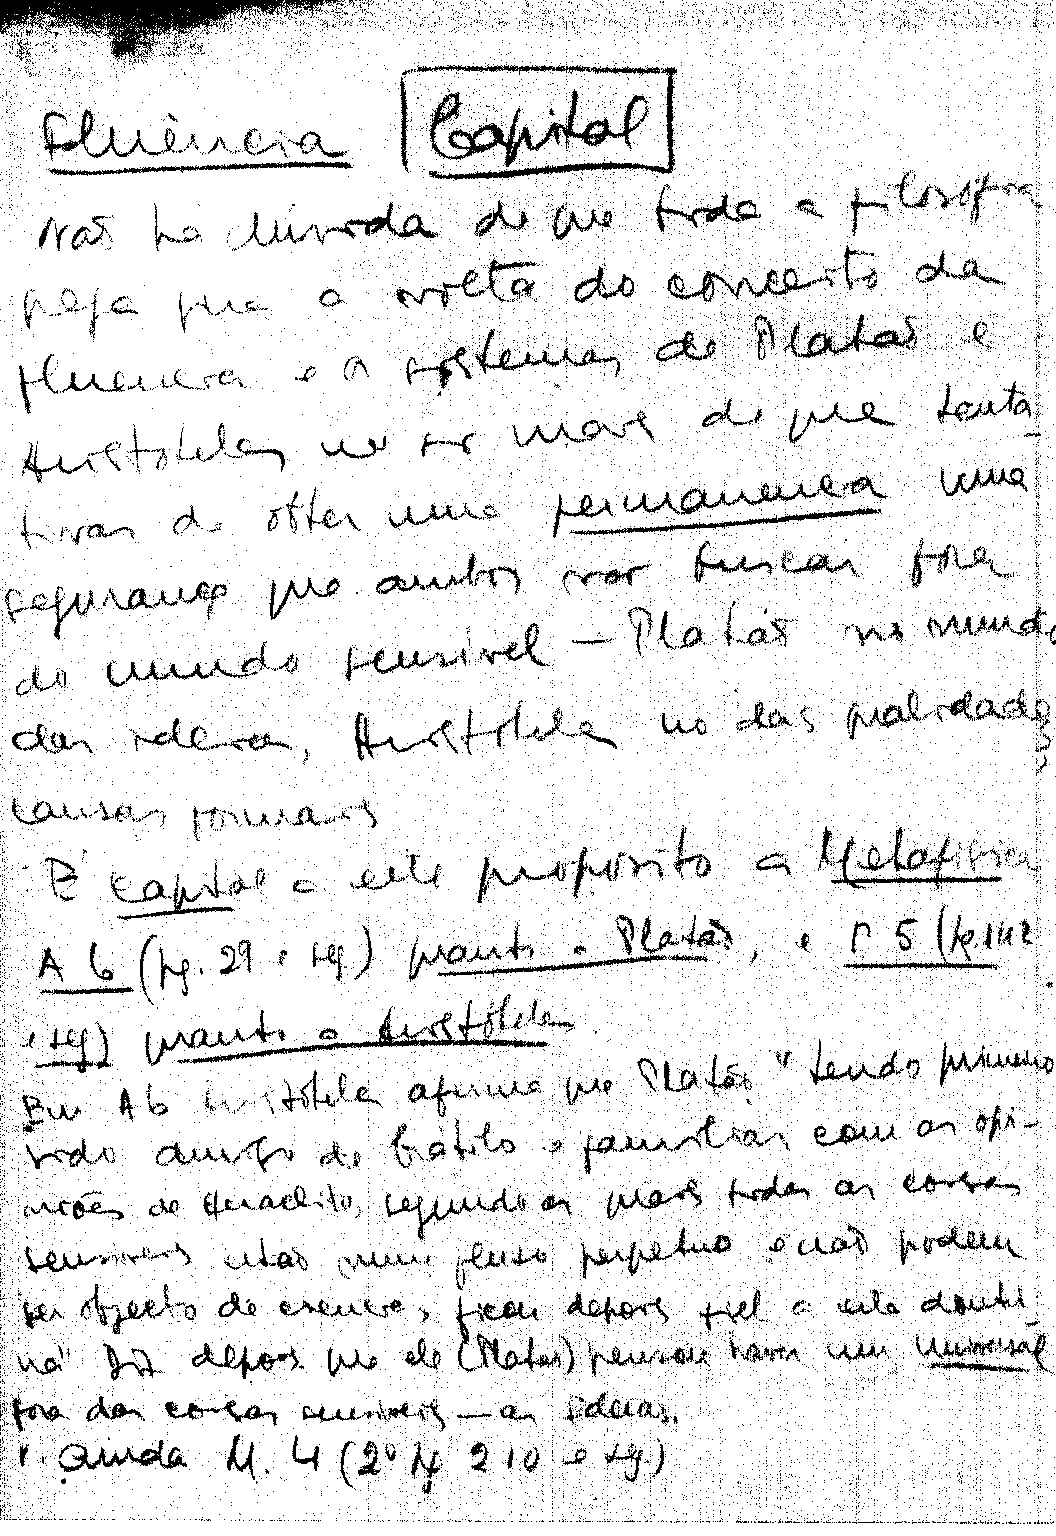 Fluência Capital
Não ha duvida de que toda a filosofia
grega gira a volta do conceito da
fluencia e os sistemas de Platão e
Aristóteles não são mais do que tenta-
tivas de obter uma permanencia uma
segurança que ambos vão buscar fora
do mundo sensivel — Platão no mundo
das ideias, Aristóteles no das qualidades,
causas formais
É capital a este proposito a Metafisica
A 6 (pg. 29 e sg) quanto a Platão, e Γ 5 (pg. 142
e sg) quanto a Aristóteles
Em A 6 Aristóteles afirma que Platão "tendo primeiro
sido amigo de Crátilo e familiar com as opi-
niões de Heraclito, segundo as quais todas as coisas
sensiveis estão num fluxo perpetuo e não podem
ser objecto de ciencia, ficou depois fiel a esta doutri-
na" Diz depois que ele (Platão) pensou haver um universal
fora das coisas sensiveis — as Ideias.
V. ainda M. 4 (2º pg 210 e sg.)